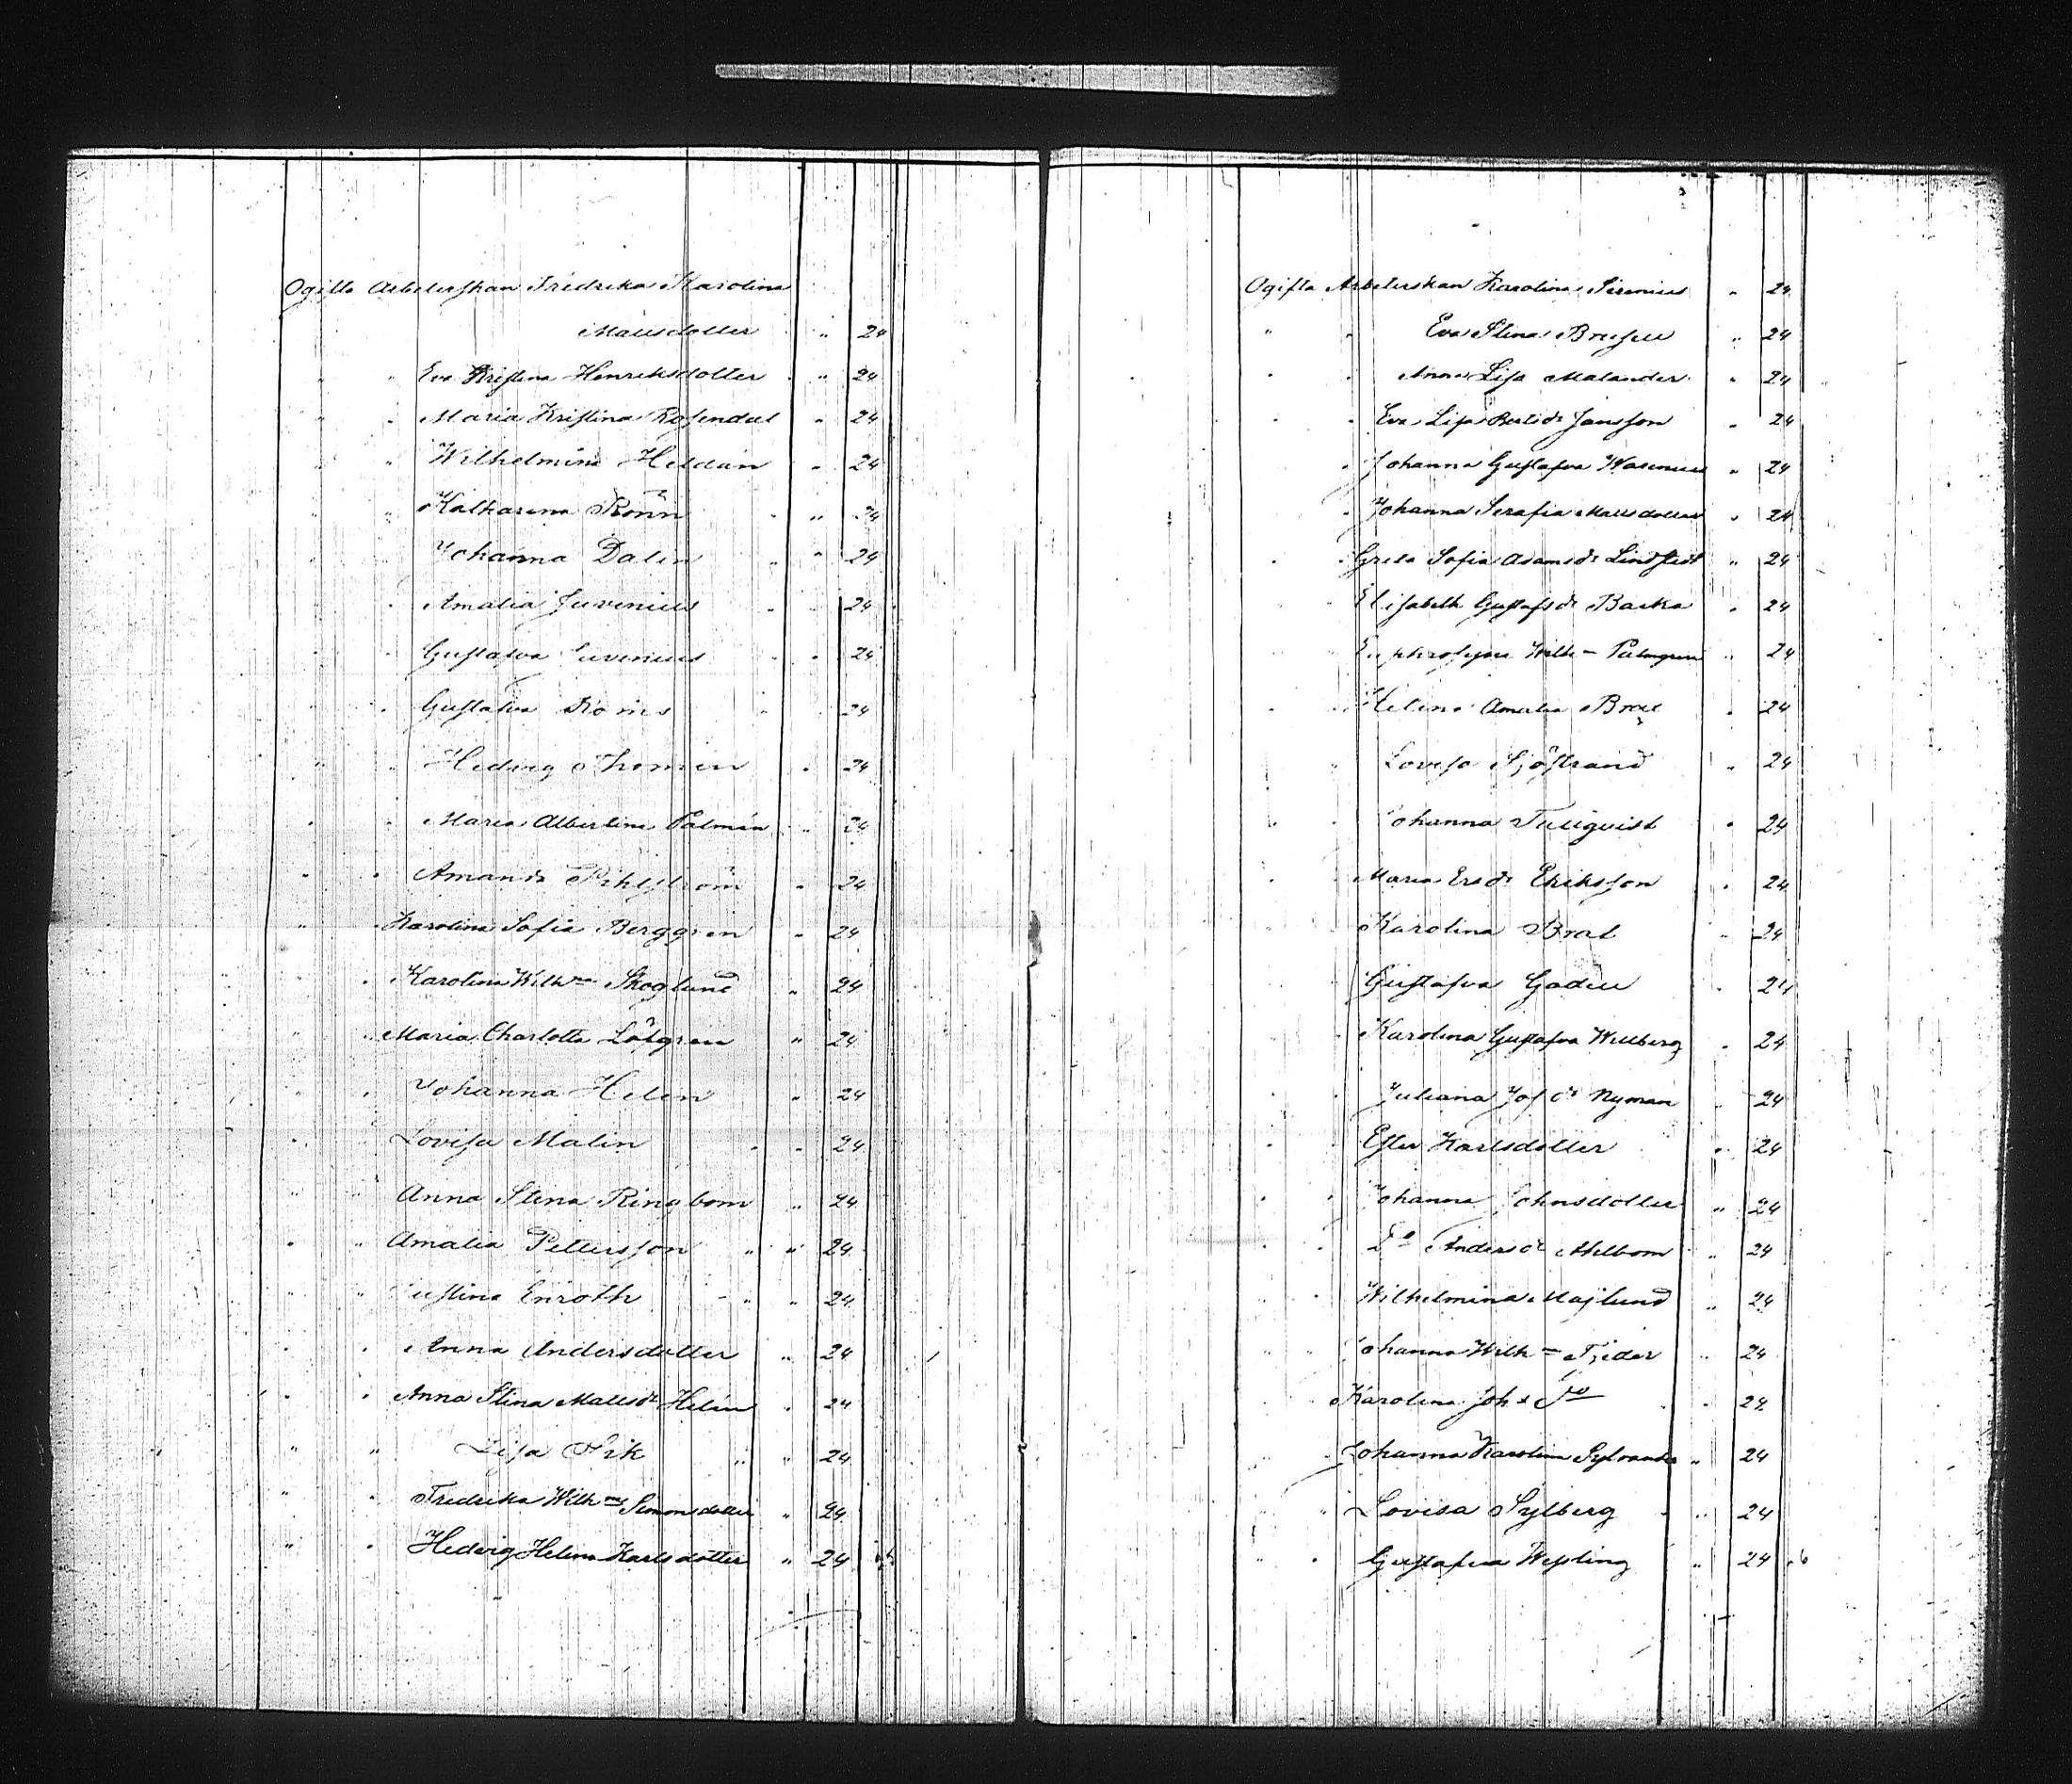 Ogifta Arbeterskan Fredrika Karolina
Mattsdotter " 24
" " Eva Kristina Henriksdotter " 24
" " Maria Kristina Rosendal " 24
" " Wilhelmina Heldán " 24
" " Katharina Rönn " 24
" Johanna Dalin " 24
" Amalia Juvenius " 24
" Gustafva Juvenius " 24
" Gustafva Roms 24
" " Hedvig Thomén " 24
" " Maria Albertina Palmén " 24
" " Amanda Pihlström " 24
" " Karolina Sofia Berggrén " 24
" " Karolina Wilhna Skoglund " 24
" " Maria Charlotta Löfgren " 24
" " Johanna Helen " 24
" Lovisa Malin " 24
" " Anna Stina Ringbom " 24
" " Amalia Pettersson " " 24
" " Justina Enroth " " 24
" " Anna Andersdotter " 24
" " Anna Stina Mattsdr Helén " 24
" " Lisa Vik " " 24
" " Fredrika Wilhna Simonsdotter " 24
" " Hedvig Helena Karlsdotter " 24
Ogifta Arbeterskan Karolina Sirenius " 24
" " Eva Stina " 24
" " Anna Lisa Malander " 24
" " Eva Lisa Bertilsdr Jansson " 24
" Johanna Gustafva Warenius " 24
" Johanna Serafia Mattsdotter " 24
" " Greta Sofia Adamsdr Lindstedt " 24
" Elisabeth Gustafsdr Backa " 24
Euphrosyne Wilhna Palmgren " 24
" Helena Amalia Brat " 24
" Lovisa Sjöstrand " 24
" Johanna Tullqvist " 24
" Maria Ersdr Eriksson " 24
" Karolina Brat " 24
Gustafva Gadiu " 24
" Karolina Gustafva Willberg " 24
" Juliana Josdr Nyman " 24
" Ester Karlsdotter " 24
" " Johanna Johnsdotter " 24
" " Do Andersdr Ahlbom " 24
" Wilhelmina Majlund " 24
" " Johanna Wilhna Tjeder " 24
" Karolina Joh Do " 24
" Johanna Karolina Sylvander " 24
" Lovisa Sylberg " 24
" " Gustafva Wessling " 24